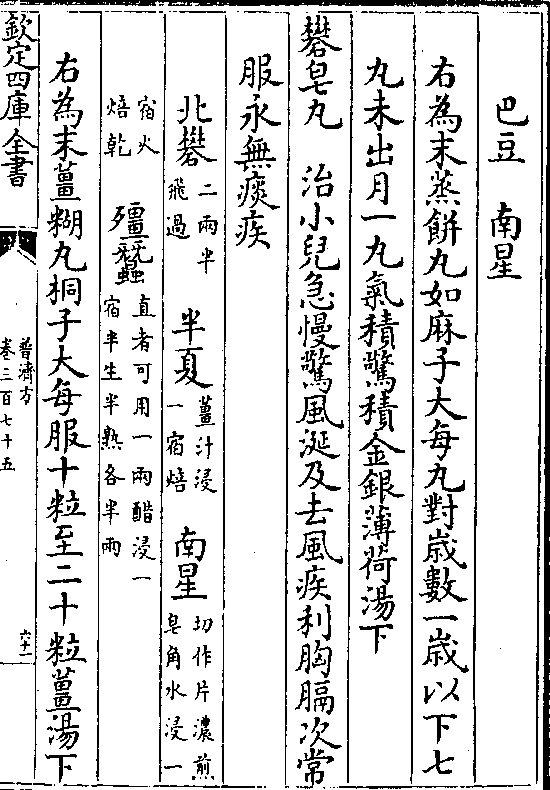 巴豆　南星
右為末蒸餅丸如麻子大每丸對歲數一歲以下七
丸未出月一丸氣積驚積金銀薄荷湯下
礬皂丸　治小兒急慢驚風涎及去風疾利胸膈次常
服永無痰疾
北礬二兩半飛過　半夏薑汁浸一宿焙　南星切作片濃煎皂角水浸一
宿火焙乾　殭蠶直者可用一兩醋浸一宿半生半熟各半兩
右為末薑糊丸桐子大每服十粒至二十粒薑湯下
欽定四庫全書
普濟方
卷三百七十五
六十一